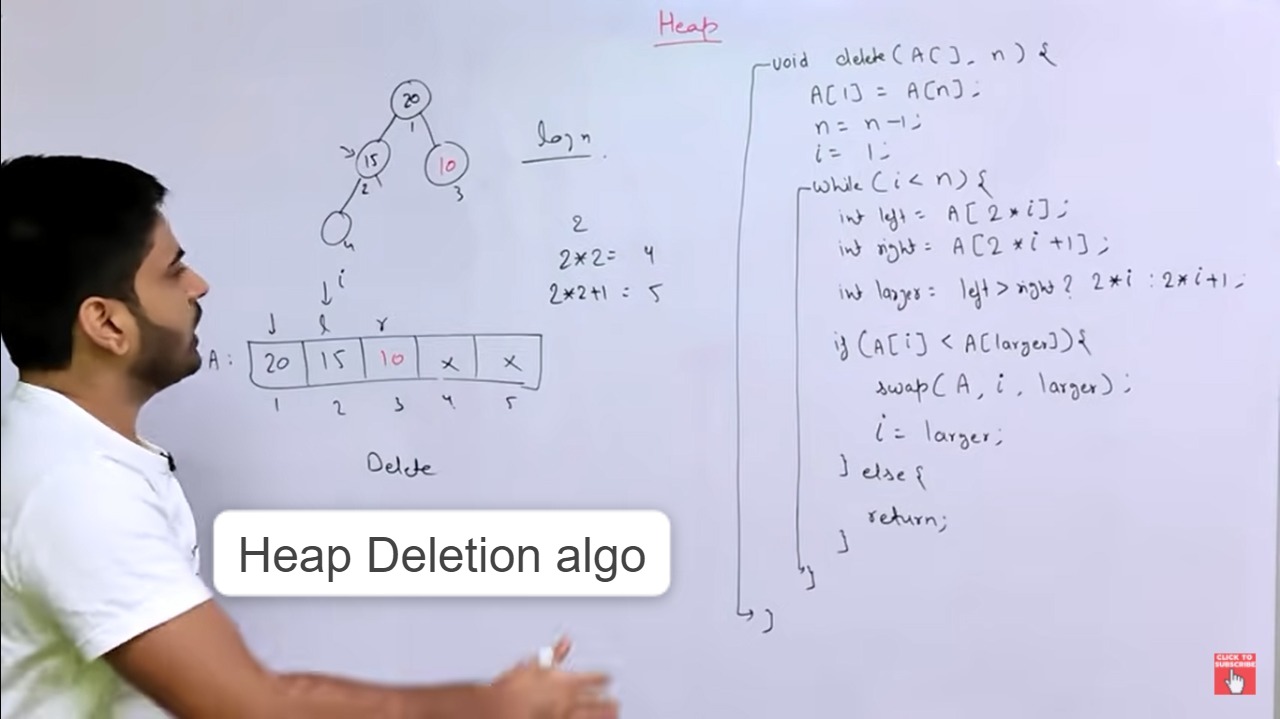 Heap
20
1
15
10
2
3
4
log n
2
2*2= 4
2*2+1 = 5
i
l
r
A: 20 15 10 x x
1 2 3 4 5
Delete
Heap Deletion algo
void delete(A[], n) {
A[1] = A[n];
n= n-1;
i= 1;
while(i< n){
int left= A[2*i];
int right= A[2*i+1];
int larger= left>right? 2*i : 2*i+1;
if(A[i] < A[larger]){
swap(A, i, larger);
i= larger;
} else{
return;
}
}
}
CLICK TO
SUBSCRIBE